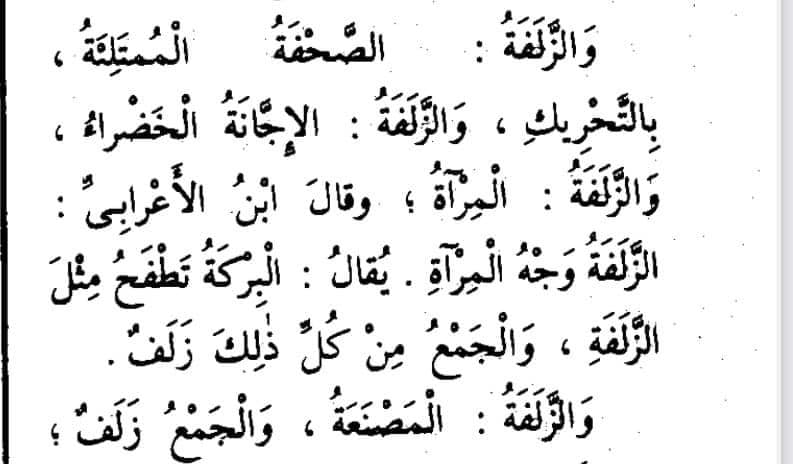 وَالزَّلَفَةُ : الصَّحْفَةُ الْمُمتَلِئَةُ ،
بِالتَّحْرِيكِ ، وَالزَّلَفَةُ : الإِجَّانَةُ الْخَضْراءُ ،
وَالزَّلَفَةُ : الْمِرْآةُ ؛ وقالَ ابْنُ الأَعْرابِىِّ :
الزَّلَفَةُ وَجْهُ الْمِرْآةِ . يُقالُ : الْبِرْكَةُ تَطْفَحُ مِثْلَ
الزَّلَفَةِ ، وَالْجَمْعُ مِنْ كُلِّ ذٰلِكَ زَلَفٌ .
وَالزَّلَفَةُ : الْمَصْنَعَةُ ، وَالْجَمْعُ زَلَفٌ ؛